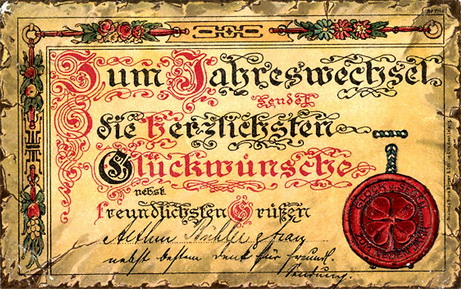 Zum Jahreswechsel
sendet
die herzlichsten
Glückwünsche
nebst
freundlichsten Grüßen
Arthur & Frau
nebst bestem Dank für freundl.
Sendung.